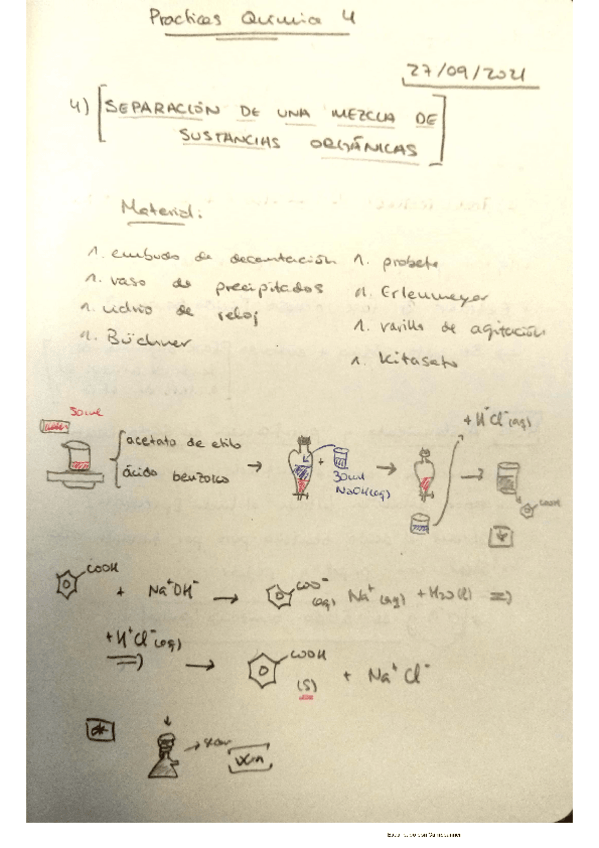 Practicas Química 4
27/09/2021
4) [SEPARACIÓN DE UNA MEZCLA DE
SUSTANCIAS ORGÁNICAS]
Material:
1. embudo de decantación
1. vaso de precipitados
1. vidrio de reloj
1. Büchner
1. probeta
1. Erlenmeyer
1. varilla de agitación
1. Kitasato
50ml
acetato de etilo
ácido benzoico
+
30ml
NaOH(aq)
+ H⁺Cl⁻(aq)
COOH
*
COOH + Na⁺OH⁻ → COO⁻ (aq) Na⁺(aq) + H2O(l) =>
+ H⁺Cl⁻(aq) => → COOH (s) + Na⁺Cl⁻
*